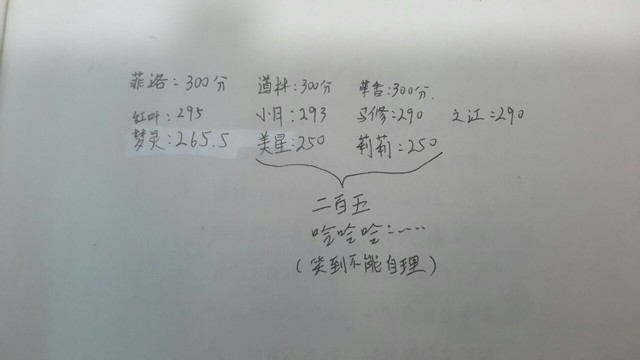 菲洛：300分 道林：300分 草香：300分.
红叶：295 小月：293 马修：290 之江：290
梦灵：265.5 美星：250 莉莉：250
二百五
哈哈哈……
（笑到不能自理）